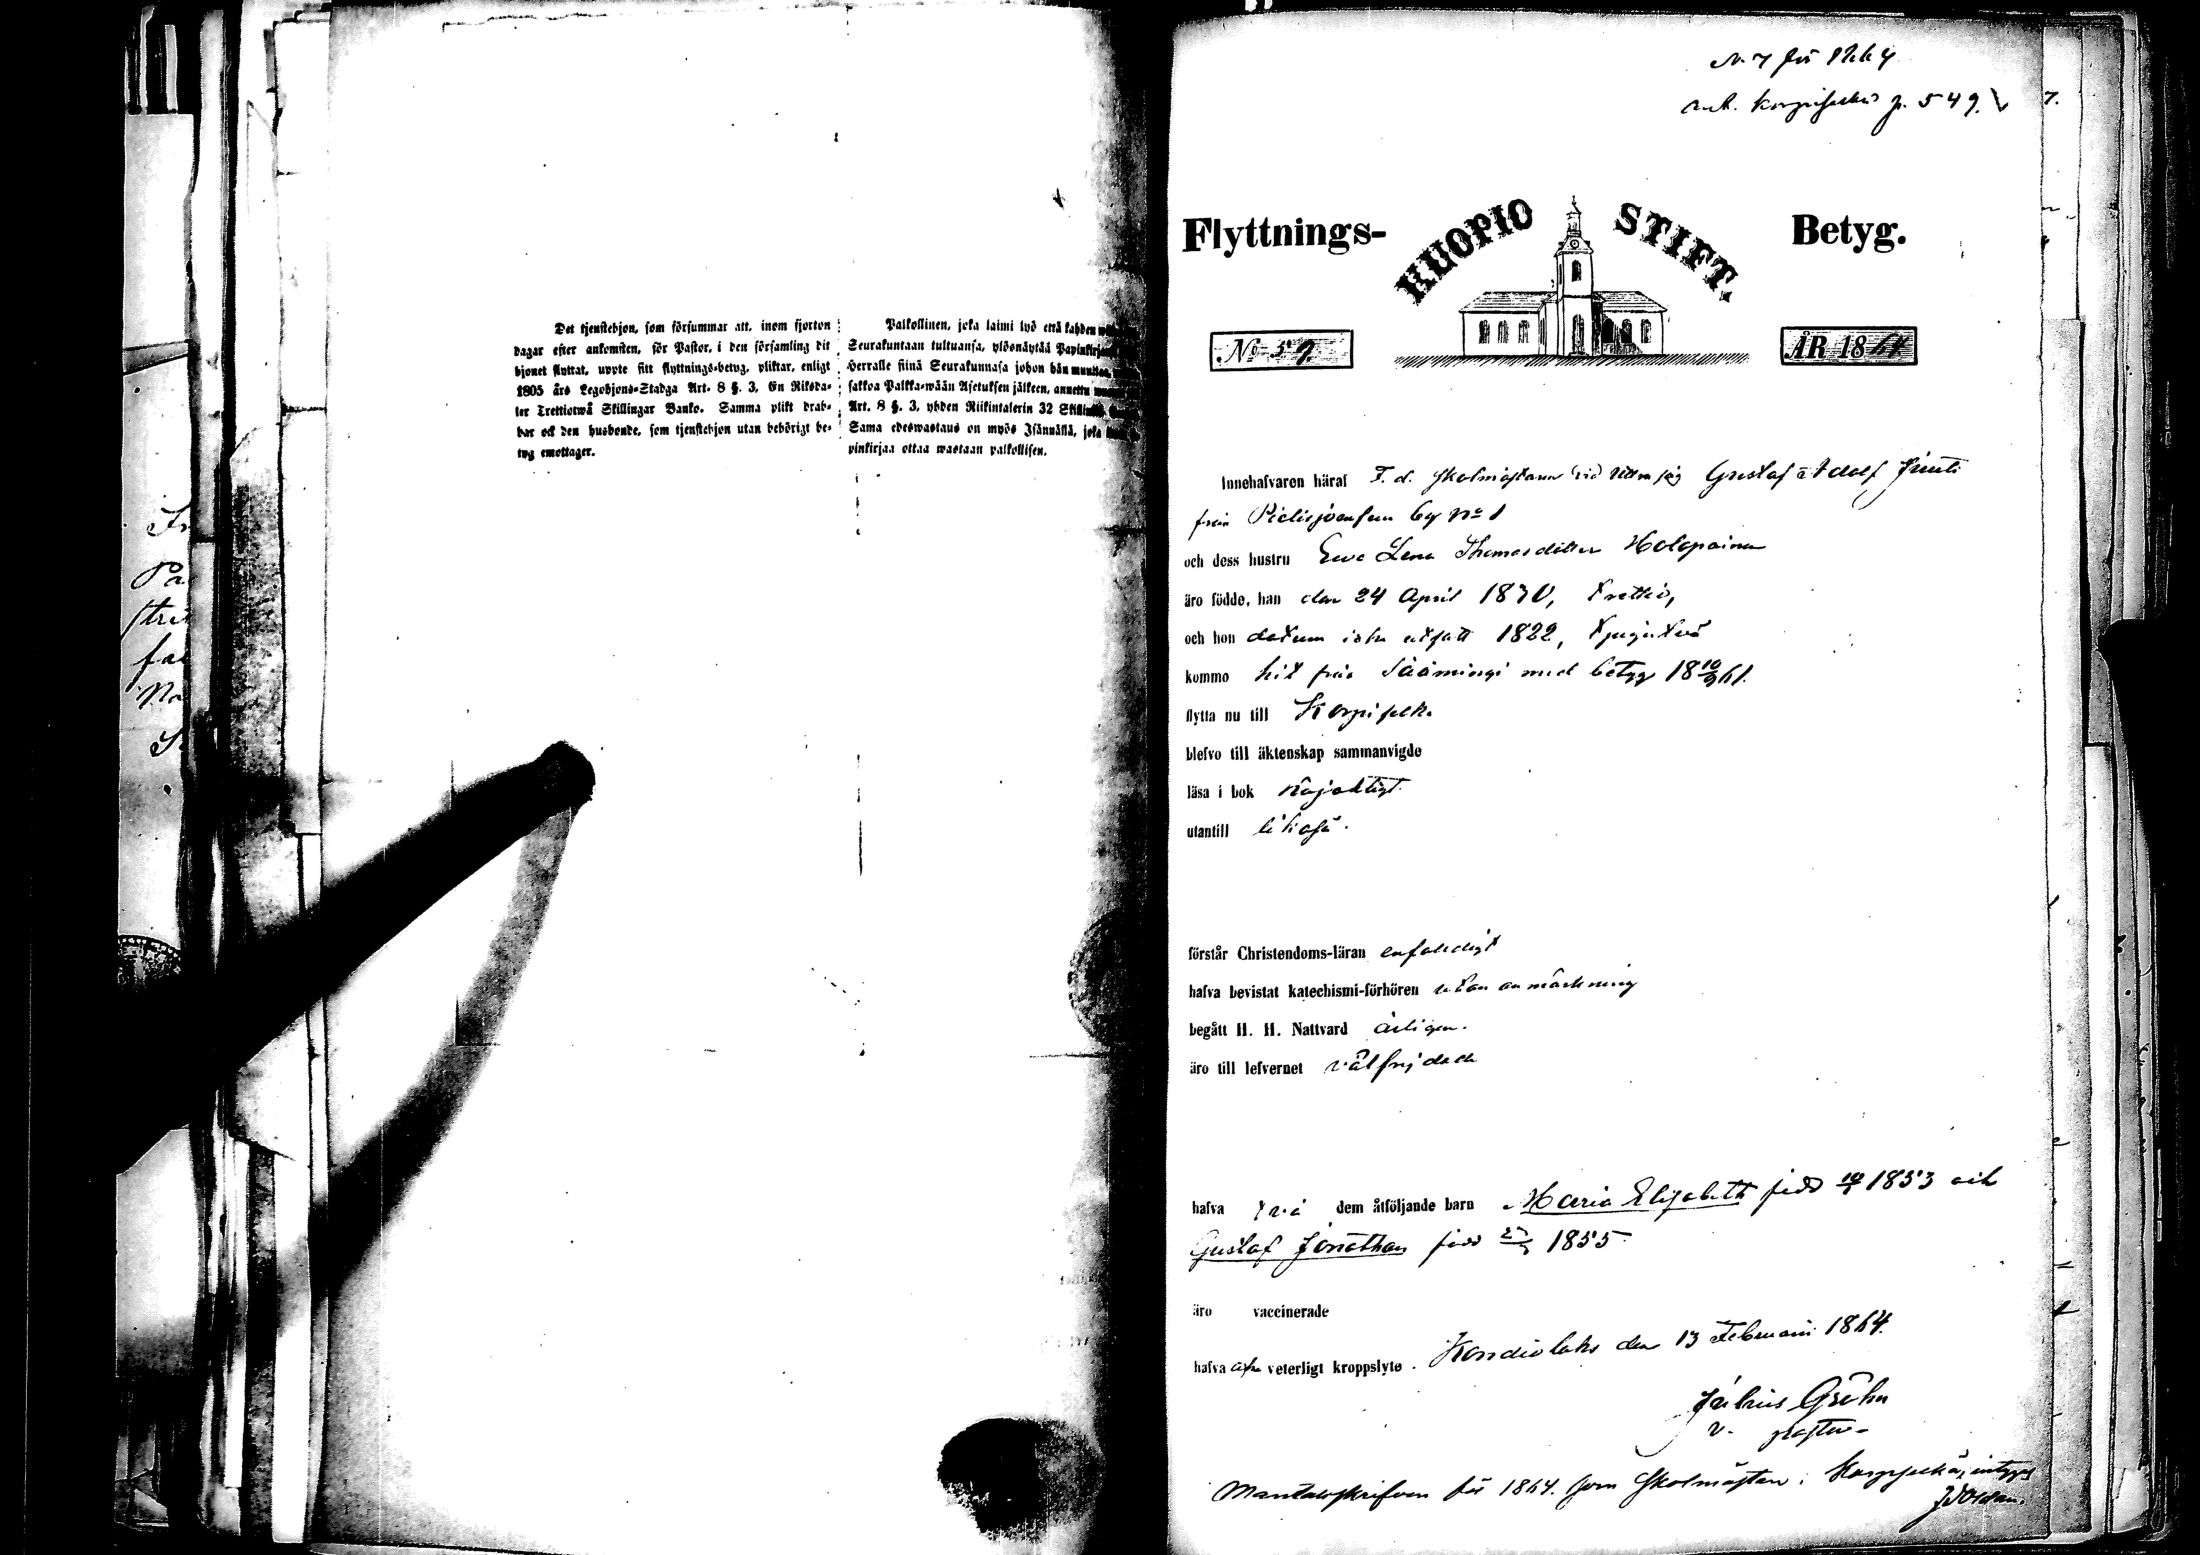 Det tjenstehjon, som försummar att, inom fjorton
dagar efter ankomsten, för Pastor, i den församling dit
hjonet flyttat, uppte sitt flyttnings-betyg, pliktar, enligt
1805 års Legohjons-Stadga Art. 8 §. 3, En Riksda-
ler Trettiotwå Skillingar Banko. Samma plikt drab-
bar ock den husbonde, som tjenstehjon utan behörigt be-
tyg emottager.
Palkollinen, joka laimi lyö että kahden
Seurakuntaan tultuansa, ylösnäytää Papinkirjans
Herralle siinä Seurakunnasa johon hän muuttaa,
sakkoa Palkka-wään Asetuksen jälkeen, annettu
Art. 8 §. 3, yhden Riikintalerin 32 Skillinkiä
Sama edeswastaus on myös Isännällä, joka
pinkirjaa ottaa wastaan palkollisen.
N. 7 för 1864
ank. Korpiselkä p. 549. 7.
Flyttnings- KUOPIO STIFT. Betyg.
No 59. ÅR 1864
Innehafvaren häraf F. d. Skolmästaren Gustaf Adolf
från Pielisjoensuu by No 1
och dess hustru Eva Lena Thomasdotter Holopainen
äro födde, han den 24 April 1830, trettio,
och hon datum icke utsatt 1822, tjugutvå
kommo hit från Säämingi med betyg 18 10/9 61.
flytta nu till Korpiselkä
blefvo till äktenskap sammanvigde
läsa i bok nöjaktigt.
utantill likaså.
förstår Christendoms-läran enfaldigt
hafva bevistat katechismi-förhören utan anmärkning
begått H. H. Nattvard årligen.
äro till lefvernet välfrejdade
hafva två dem åtföljande barn Maria Elisabeth född 1853 och
Gustaf Jonathan född 1855
äro vaccinerade
hafva icke veterligt kroppslyte. Kondiolaks den 13 Februari 1864.
Julius Gröhn
v. pastor
Mantalsskrifven för 1864 som Skolmästare i Korpiselkä, intygar